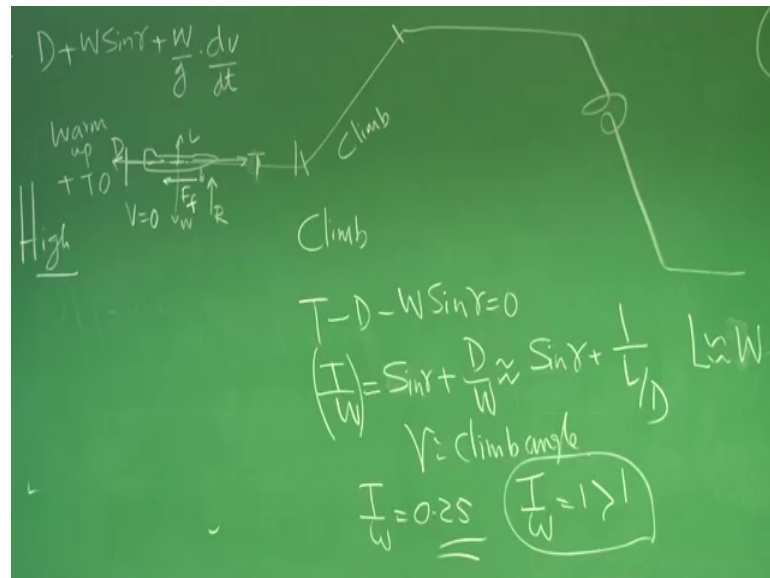 D+WSinγ+W/g.dv/dt
Warm
up
+ TO
D
L
T
F_f
V=0
W
R
High
Climb
Climb
T-D-WSinγ=0
(T/W)=Sinγ+D/W≈Sinγ+1/L/D L≈W
γ: Climb angle
T/W=0.25 T/W=1>1